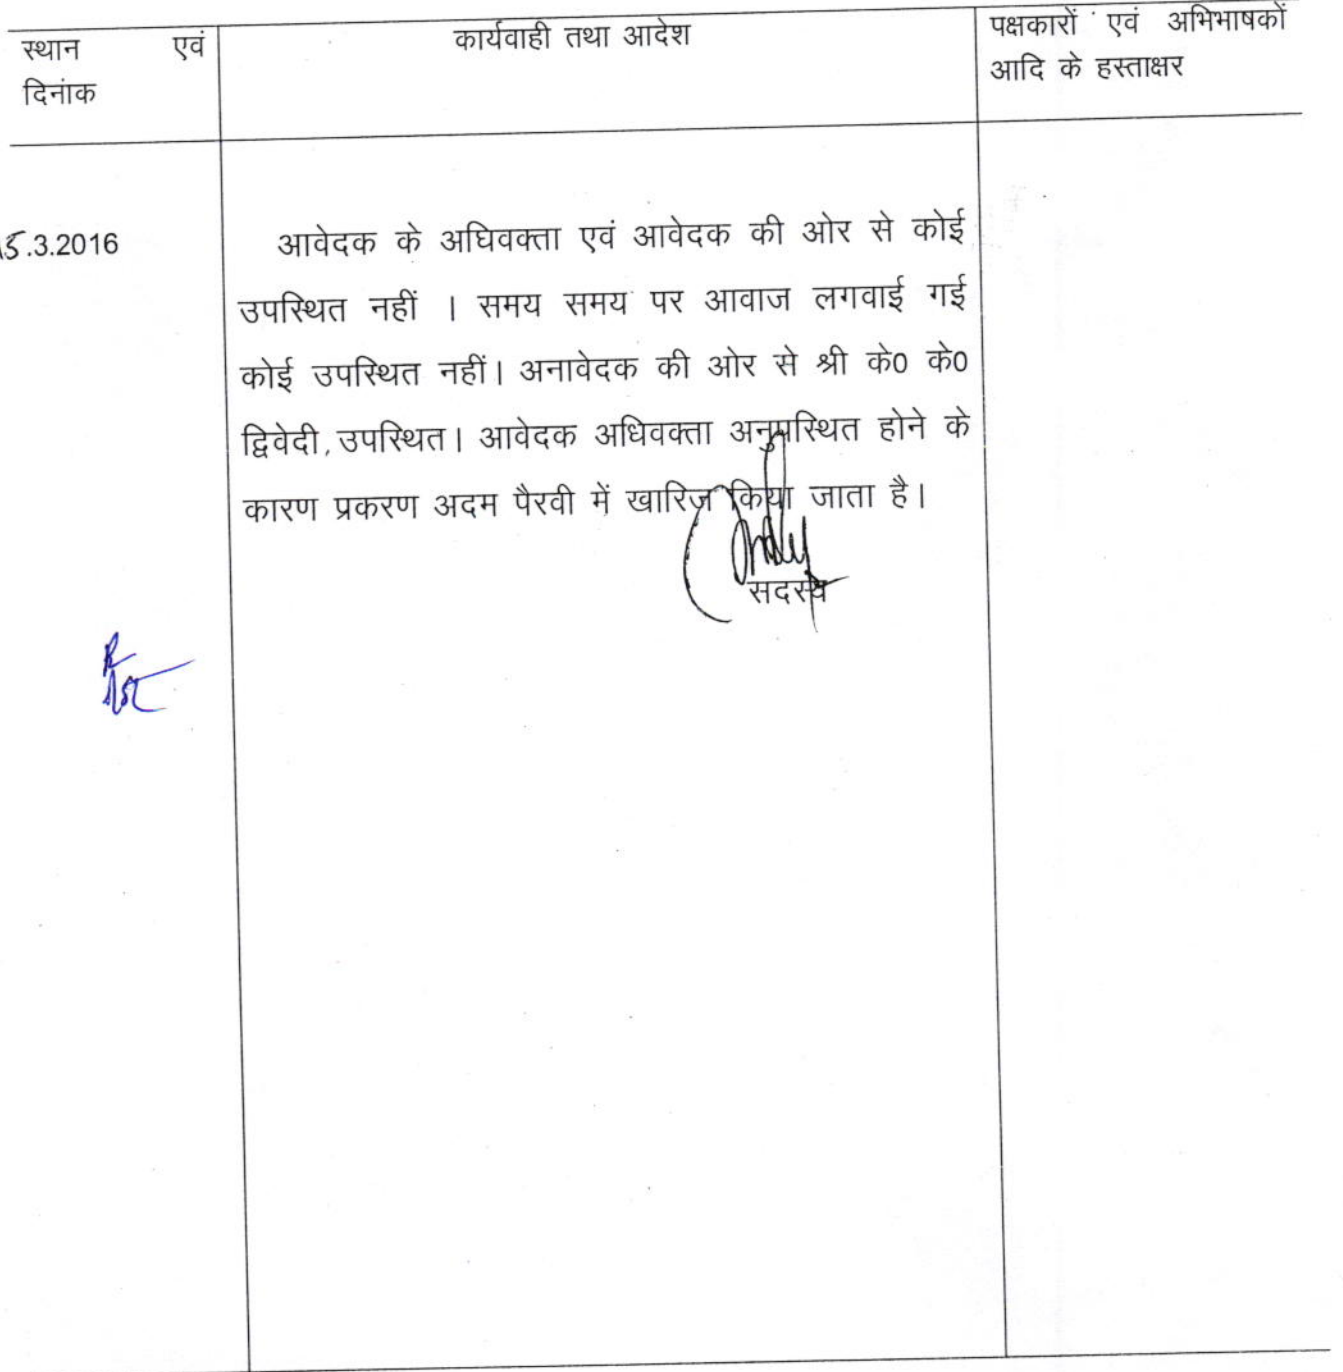 स्थान एवं
दिनांक
कार्यवाही तथा आदेश
पक्षकारों एवं अभिभाषकों
आदि के हस्ताक्षर
5.3.2016
आवेदक के अघिवक्ता एवं आवेदक की ओर से कोई
उपस्थित नहीं । समय समय पर आवाज लगवाई गई
कोई उपस्थित नहीं। अनावेदक की ओर से श्री के0 के0
द्विवेदी, उपस्थित। आवेदक अधिवक्ता अनुपस्थित होने के
कारण प्रकरण अदम पैरवी में खारिज किया जाता है।
सदस्य